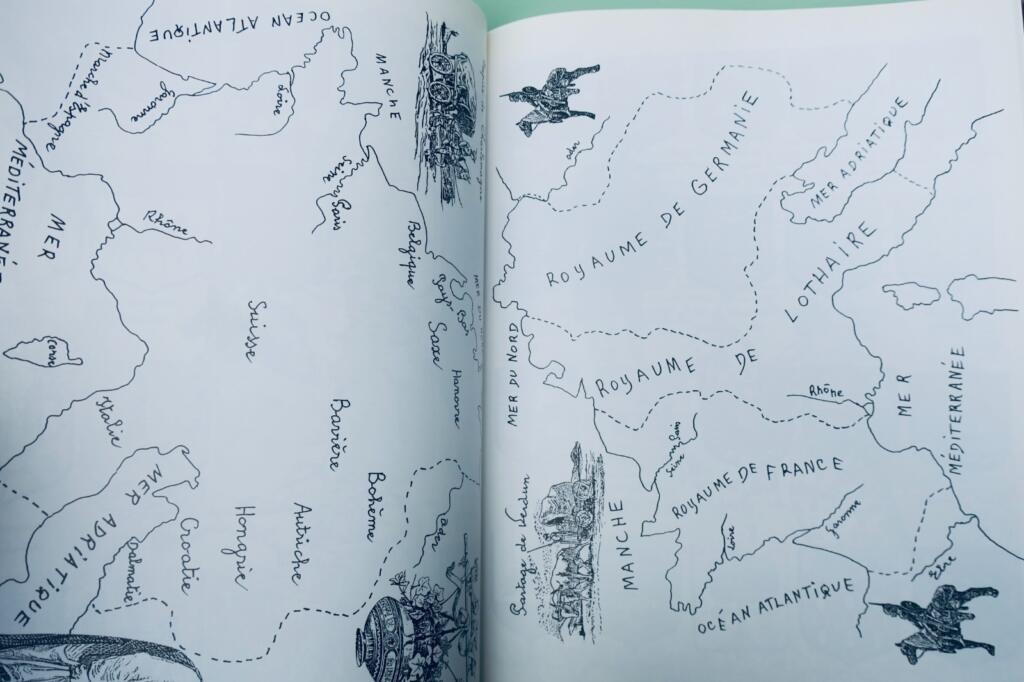 OCEAN ATLANTIQUE
MANCHE
Marche d'Espagne
Garonne
Loire
Seine
Paris
MER
MÉDITERRANÉE
Rhône
Belgique
Pays
Bas
Saxe
Hanovre
Suisse
Corse
Italie
Bavière
Bohême
MER ADRIATIQUE
Croatie
Dalmatie
Hongrie
Autriche
Oder
Partage de Verdun
MER DU NORD
MANCHE
Oder
ROYAUME DE GERMANIE
MER ADRIATIQUE
ROYAUME DE LOTHAIRE
Rhône
MER
MÉDITERRANÉE
Seine
Paris
ROYAUME DE FRANCE
Loire
Garonne
OCÉAN ATLANTIQUE